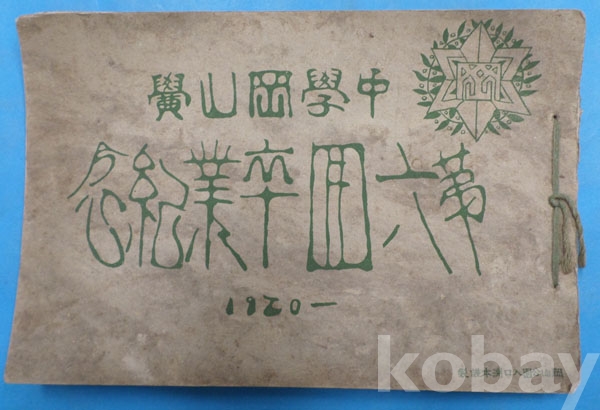 中學岡山黌
第六回卒業紀念
1920—
kobay